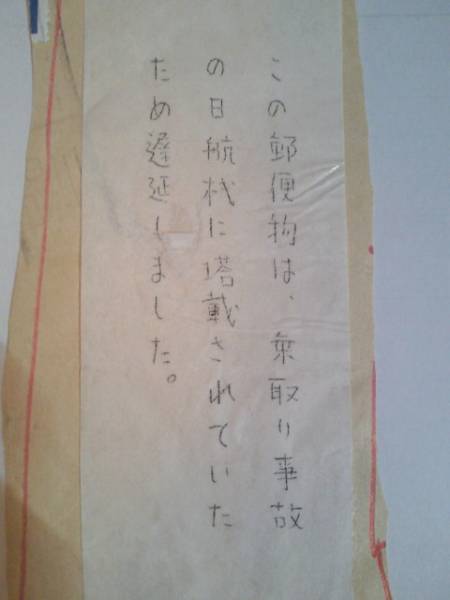 この郵便物は、乗取り事故
の日航机に塔載されていた
ため遅延しました。